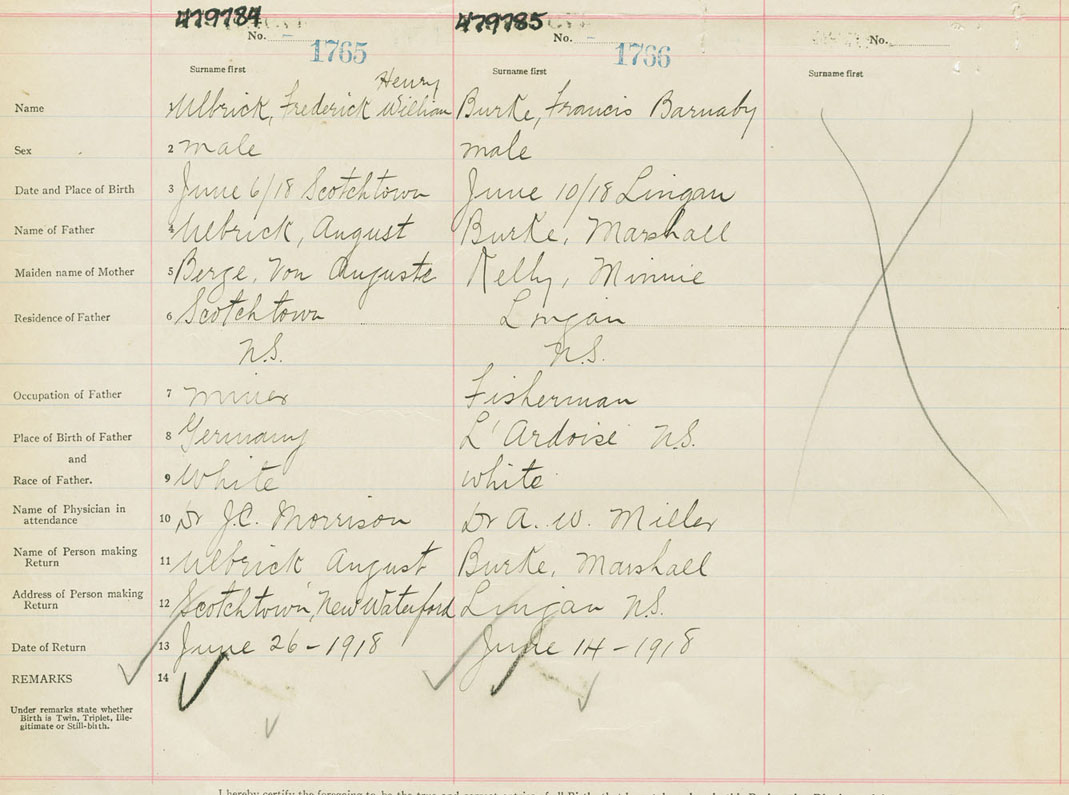 479784 479785
No. No. No.
1765 1766
Surname first Surname first Surname first
Henry
Name Ulbrick, Frederick William Burke, Francis Barnaby
Sex 2 male male
Date and Place of Birth 3 June 6/18 Scotchtown June 10/18 Lingan
Name of Father 4 Ulbrick, August Burke, Marshall
Maiden name of Mother 5 Berge, Von Auguste Kelly, Minnie
Residence of Father 6 Scotchtown Lingan
N.S. N.S.
Occupation of Father 7 miner Fisherman
Place of Birth of Father 8 Germany L'Ardoise N.S.
and
Race of Father. 9 White white
Name of Physician in
attendance 10 Dr J.C. Morrison Dr A. W. Miller
Name of Person making
Return 11 Ulbrick August Burke, Marshall
Address of Person making
Return 12 Scotchtown, New Waterford Lingan N.S.
Date of Return 13 June 26-1918 June 14-1918
REMARKS 14
Under remarks state whether
Birth is Twin, Triplet, Ille-
gitimate or Still-birth.
I hereby certify the foregoing to be the true and correct